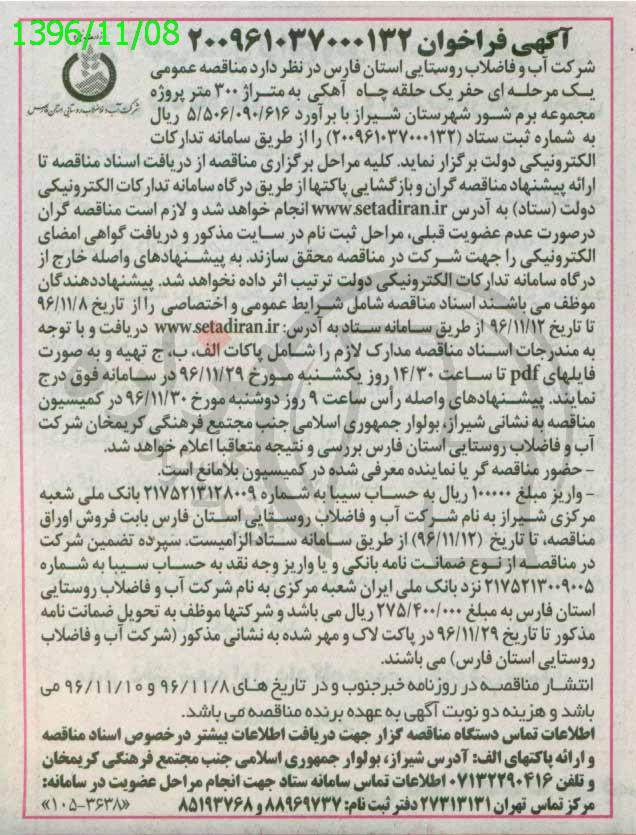 1396/11/08
آگهی فراخوان ۲۰۰۹۶۱۰۳۷۰۰۰۱۳۲
شرکت آب و فاضلاب روستایی استان فارس
شرکت آب و فاضلاب روستایی استان فارس در نظر دارد مناقصه عمومی
یک مرحله ای حفر یک حلقه چاه آهکی به متراژ ۳۰۰ متر پروژه
مجموعه برم شور شهرستان شیراز با برآورد ۵/۵۰۶/۰۹۰/۶۱۶ ریال
به شماره ثبت ستاد (۲۰۰۹۶۱۰۳۷۰۰۰۱۳۲) را از طریق سامانه تدارکات
الکترونیکی دولت برگزار نماید. کلیه مراحل برگزاری مناقصه از دریافت اسناد مناقصه تا
ارائه پیشنهاد مناقصه گران و بازگشایی پاکتها از طریق درگاه سامانه تدارکات الکترونیکی
دولت (ستاد) به آدرس www.setadiran.ir انجام خواهد شد و لازم است مناقصه گران
درصورت عدم عضویت قبلی، مراحل ثبت نام در سایت مذکور و دریافت گواهی امضای
الکترونیکی را جهت شرکت در مناقصه محقق سازند. به پیشنهادهای واصله خارج از
درگاه سامانه تدارکات الکترونیکی دولت ترتیب اثر داده نخواهد شد. پیشنهاددهندگان
موظف می باشند اسناد مناقصه شامل شرایط عمومی و اختصاصی را از تاریخ ۹۶/۱۱/۸
تا تاریخ ۹۶/۱۱/۱۲ از طریق سامانه ستاد به آدرس: www.setadiran.ir دریافت و با توجه
به مندرجات اسناد مناقصه مدارک لازم را شامل پاکات الف، ب، ج تهیه و به صورت
فایلهای pdf تا ساعت ۱۴/۳۰ روز یکشنبه مورخ ۹۶/۱۱/۲۹ در سامانه فوق درج
نمایند. پیشنهادهای واصله رأس ساعت ۹ روز دوشنبه مورخ ۹۶/۱۱/۳۰ در کمیسیون
مناقصه به نشانی شیراز، بولوار جمهوری اسلامی جنب مجتمع فرهنگی کریمخان شرکت
آب و فاضلاب روستایی استان فارس بررسی و نتیجه متعاقبا اعلام خواهد شد.
- حضور مناقصه گر یا نماینده معرفی شده در کمیسیون بلامانع است.
- واریز مبلغ ۱۰۰۰۰۰ ریال به حساب سیبا به شماره ۲۱۷۵۲۱۳۱۲۸۰۰۹ بانک ملی شعبه
مرکزی شیراز به نام شرکت آب و فاضلاب روستایی استان فارس بابت فروش اوراق
مناقصه، تا تاریخ (۹۶/۱۱/۱۲) از طریق سامانه ستاد الزامیست. سپرده تضمین شرکت
در مناقصه از نوع ضمانت نامه بانکی و یا واریز وجه نقد به حساب سیبا به شماره
۲۱۷۵۲۱۳۰۰۹۰۰۵ نزد بانک ملی ایران شعبه مرکزی به نام شرکت آب و فاضلاب روستایی
استان فارس به مبلغ ۲۷۵/۴۰۰/۰۰۰ ریال می باشد و شرکتها موظف به تحویل ضمانت نامه
مذکور تا تاریخ ۹۶/۱۱/۲۹ در پاکت لاک و مهر شده به نشانی مذکور (شرکت آب و فاضلاب
روستایی استان فارس) می باشند.
انتشار مناقصه در روزنامه خبرجنوب و در تاریخ های ۹۶/۱۱/۸ و ۹۶/۱۱/۱۰ می
باشد و هزینه دو نوبت آگهی به عهده برنده مناقصه می باشد.
اطلاعات تماس دستگاه مناقصه گزار جهت دریافت اطلاعات بیشتر درخصوص اسناد مناقصه
و ارائه پاکتهای الف: آدرس شیراز، بولوار جمهوری اسلامی جنب مجتمع فرهنگی کریمخان
و تلفن ۰۷۱۳۲۲۹۰۴۱۶ اطلاعات تماس سامانه ستاد جهت انجام مراحل عضویت در سامانه:
مرکز تماس تهران ۲۷۳۱۳۱۳۱ دفتر ثبت نام: ۸۸۹۶۹۷۳۷ و ۸۵۱۹۳۷۶۸
«۱۰۵-۳۶۳۸»